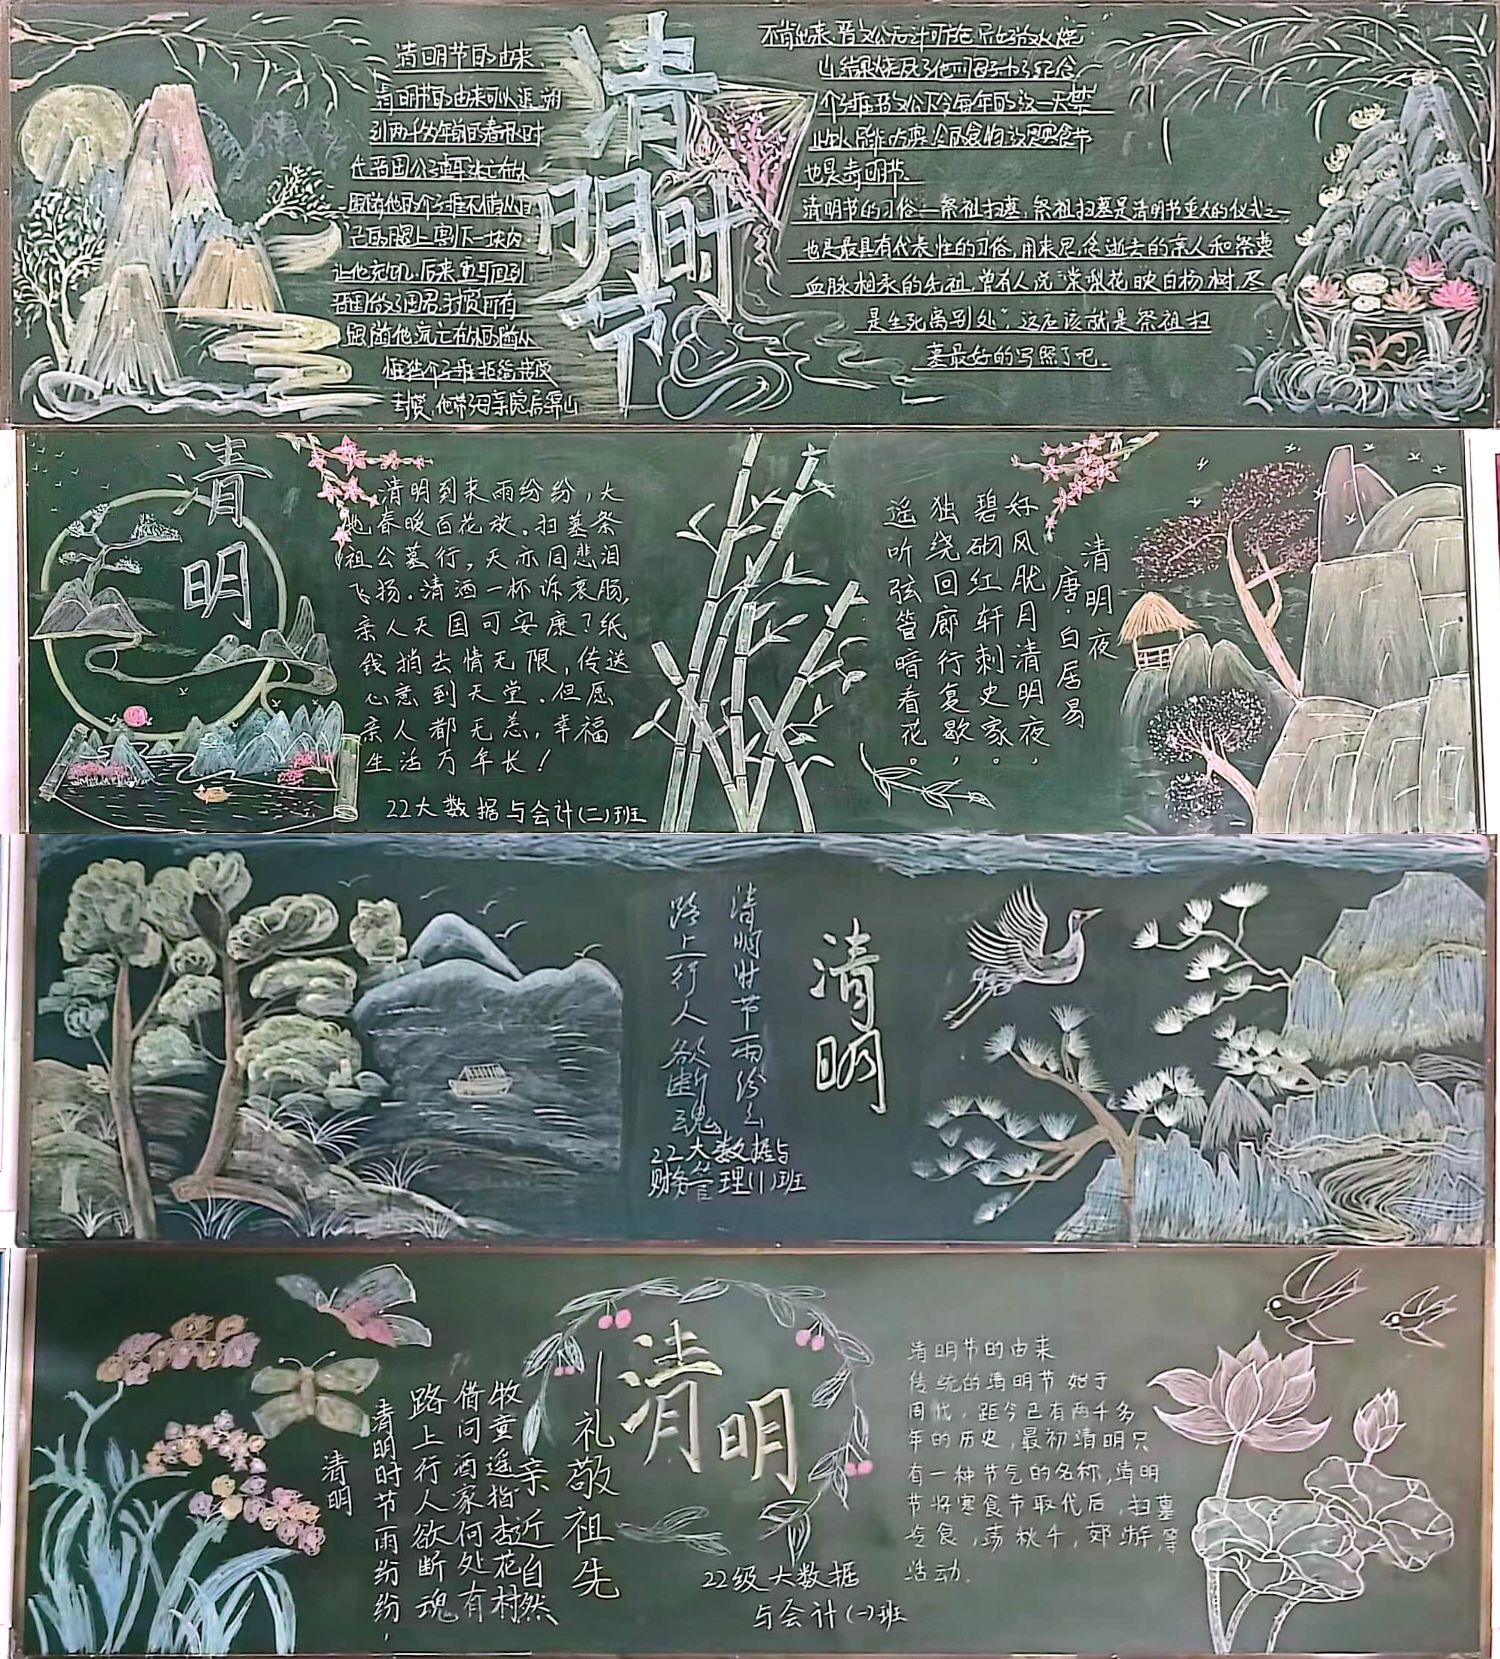 清明节的由来
清明节的由来可以追溯
到两千多年前的春秋时
代晋国公子重耳逃亡在外
跟随他的介子推不惜从自
己的腿上割下一块肉
让他充饥,后来重耳回到
晋国做了国君,
跟随他流亡在外的随从
惟独介子推拒绝接受
封赏,他带了母亲隐居绵山
清明时节
不肯出来,晋文公无计可施,只好放火烧
山,结果烧死了他们母子,为了纪念
介子推,晋文公下令每年的这一天禁
止生火,只能吃寒食,这是寒食节
也是清明节。
清明节的习俗:祭祖扫墓,祭祖扫墓是清明节重大的仪式之一
也是最具有代表性的习俗,用来思念逝去的亲人和祭奠
血脉相承的先祖,曾有人说"棠梨花映白杨树,尽
是生死离别处",这应该就是祭祖扫
墓最好的写照了吧。
清明
清明到来雨纷纷,大
地春暖百花放.扫墓祭
祖公墓行,天亦同悲泪
飞扬.清酒一杯诉衷肠,
亲人天国可安康?纸
钱捎去情无限,传送
心意到天堂.但愿
亲人都无恙,幸福
生活万年长!
22大数据与会计(二)班
清明夜
唐·白居易
好风胧月清明夜,
碧砌红轩刺史家。
独绕回廊行复歇,
遥听弦管暗看花。
清明
清明时节雨纷々
路上行人欲断魂
22大数据与
财务管理(1)班
清明
清明时节雨纷纷,
路上行人欲断魂
借问酒家何处有
牧童遥指杏花村
亲近自然
—礼敬祖先
清明
22级大数据
与会计(一)班
清明节的由来
传统的清明节始于
周代,距今已有两千多
年的历史,最初清明只
有一种节气的名称,清明
节将寒食节取代后,扫墓
冷食,荡秋千,郊游,等
活动.